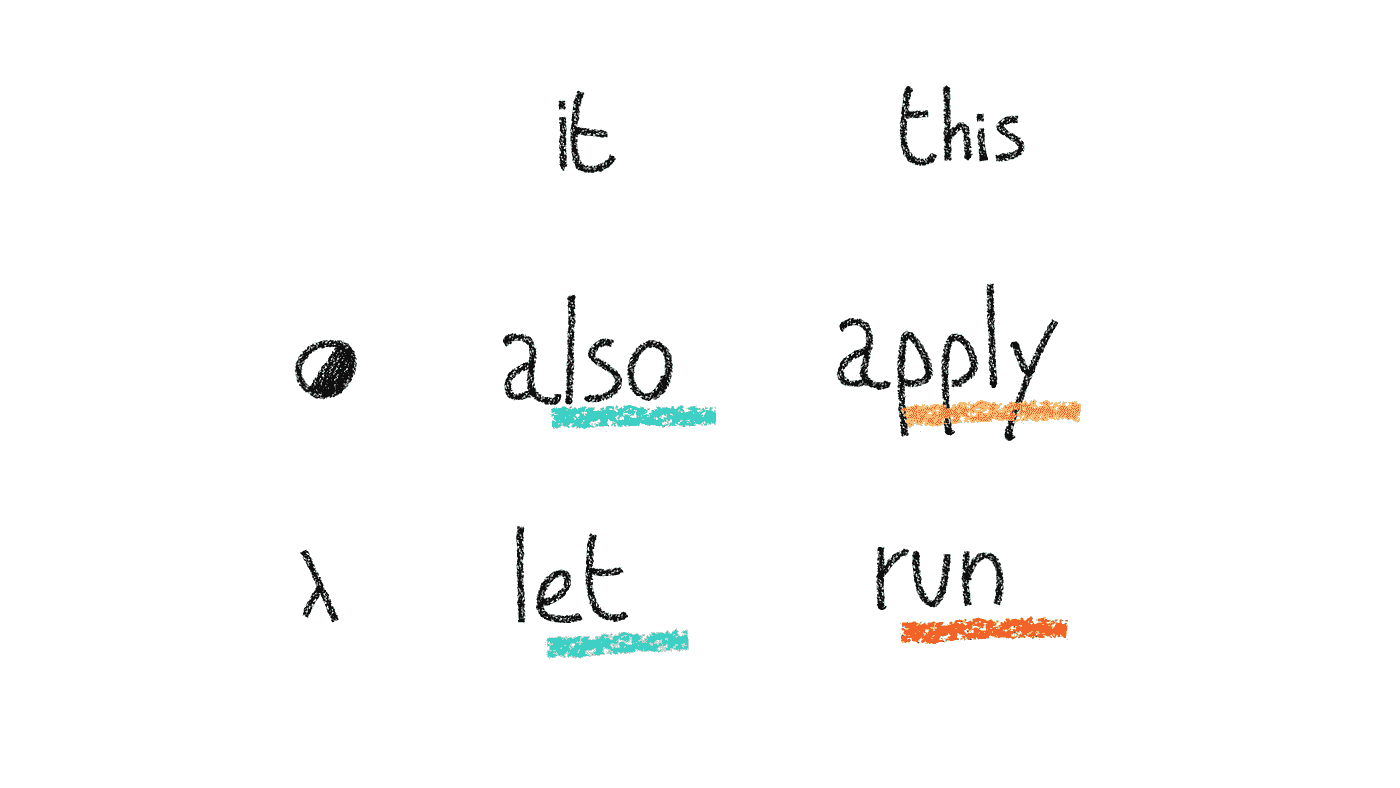 it this
also apply
λ let run